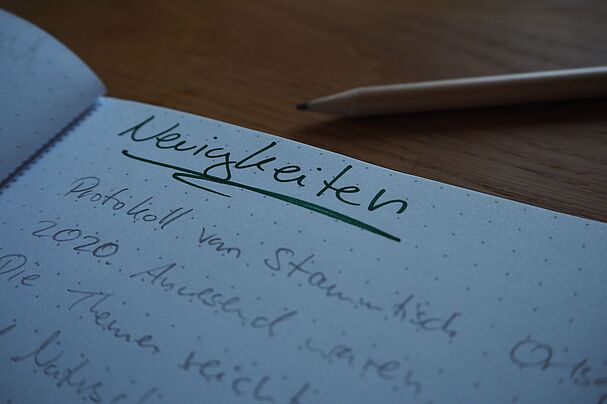 Neuigkeiten
Protokoll van Stammtisch
2020 Anwesend waren
Die Themen reicht